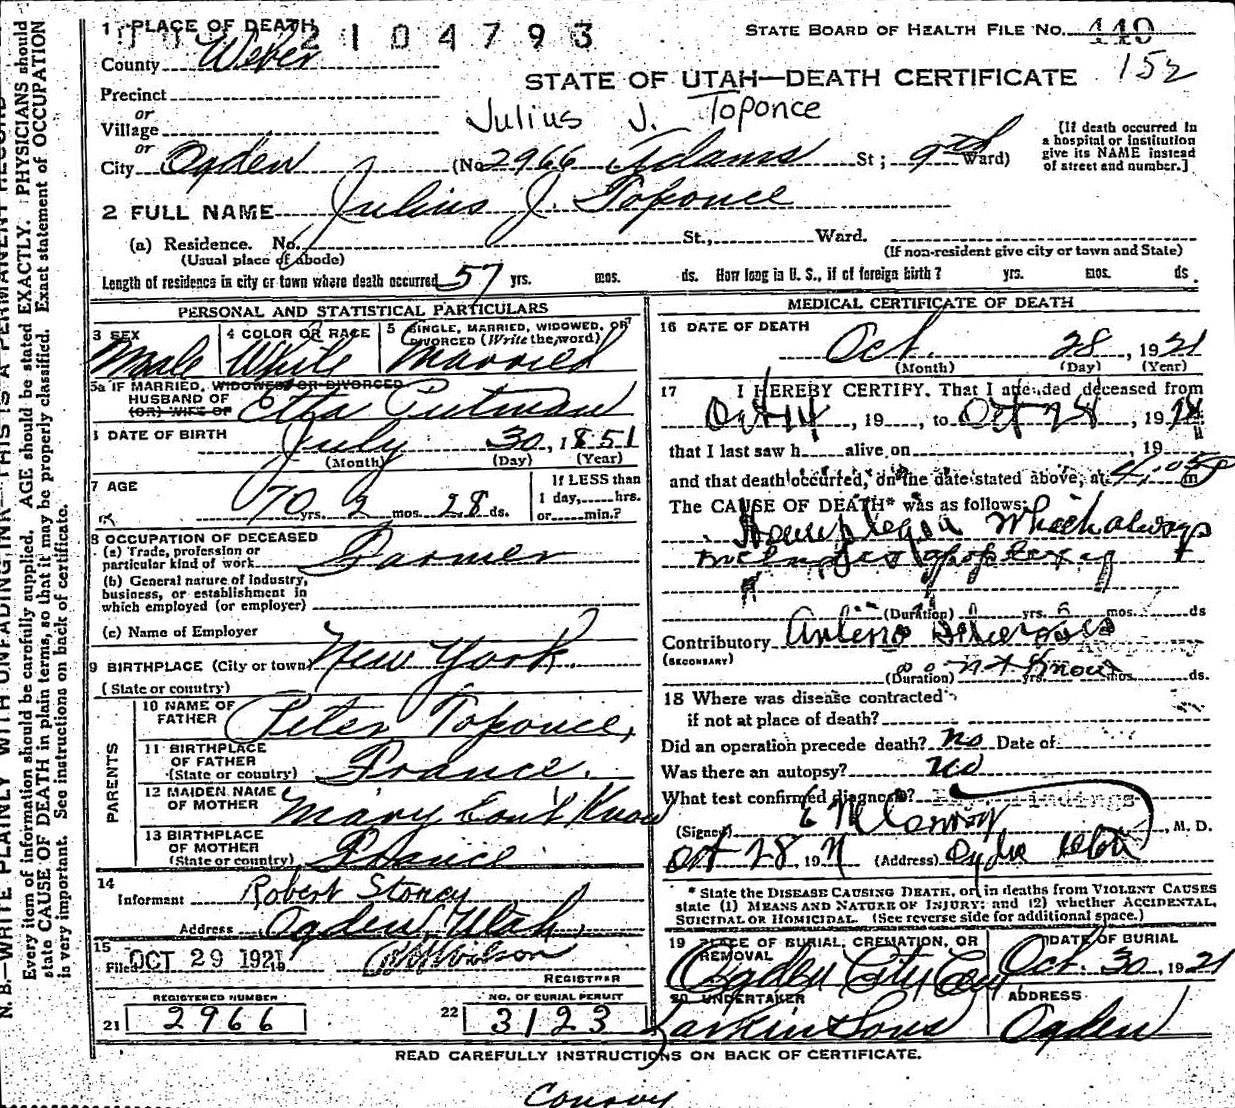 1 PLACE OF DEATH
2104793
STATE BOARD OF HEALTH FILE NO. 440
152
County Weber
STATE OF UTAH—DEATH CERTIFICATE
Precinct
or
Julius J. Toponce
Village
or
City Ogden (No 2966 Adams St; 9th Ward)
[If death occurred in
a hospital or institution
give its NAME instead
of street and number.]
2 FULL NAME Julius J. Toponce
(a) Residence. No. St., Ward.
(Usual place of abode) (If non-resident give city or town and State)
Length of residence in city or town where death occurred 57 yrs. mos. ds. How long in U. S., if of foreign birth? yrs. mos. ds.
PERSONAL AND STATISTICAL PARTICULARS
3 SEX Male
4 COLOR OR RACE White
5 SINGLE, MARRIED, WIDOWED, OR
DIVORCED (Write the word)
Married
5a IF MARRIED, WIDOWED OR DIVORCED
HUSBAND OF Etta Putman
(OR) WIFE OF
DATE OF BIRTH July 30, 1851
(Month) (Day) (Year)
7 AGE 70 yrs. 2 mos. 28 ds.
If LESS than
1 day, hrs.
or min.?
8 OCCUPATION OF DECEASED
(a) Trade, profession or
particular kind of work Farmer
(b) General nature of industry,
business, or establishment in
which employed (or employer)
(c) Name of Employer
9 BIRTHPLACE (City or town) New York
(State or country)
PARENTS
10 NAME OF
FATHER Peter Toponce,
11 BIRTHPLACE
OF FATHER
(State or country) France.
12 MAIDEN NAME
OF MOTHER Mary Don't Know
13 BIRTHPLACE
OF MOTHER
(State or country) France
14
Informant Robert Stoney
Address Ogden, Utah,
15
Filed OCT 29 1921 Wilson
REGISTRAR
REGISTERED NUMBER
21 2966
NO. OF BURIAL PERMIT
22 3123
MEDICAL CERTIFICATE OF DEATH
16 DATE OF DEATH
Oct. 28, 1921
(Month) (Day) (Year)
17 I HEREBY CERTIFY, That I attended deceased from
Oct 14, 19 , to Oct 28, 19 21
that I last saw h alive on , 19
and that death occurred, on the date stated above, at m
The CAUSE OF DEATH* was as follows:
which always
apoplexy
(Duration) yrs. mos. ds
Contributory
(SECONDARY)
(Duration) not know yrs. mos. ds.
18 Where was disease contracted
if not at place of death?
Did an operation precede death? no Date of
Was there an autopsy? no
What test confirmed diagnosis? Findings
(Signed) E M Conroy, M. D.
Oct 28, 19 21 (Address) Ogden Utah
* State the DISEASE CAUSING DEATH, or in deaths from VIOLENT CAUSES
state (1) MEANS AND NATURE OF INJURY; and (2) whether ACCIDENTAL,
SUICIDAL OR HOMICIDAL. (See reverse side for additional space.)
19 PLACE OF BURIAL, CREMATION, OR
REMOVAL
Ogden City Cem
DATE OF BURIAL
Oct. 30, 1921
20 UNDERTAKER
Larkin & Sons
ADDRESS
Ogden
READ CAREFULLY INSTRUCTIONS ON BACK OF CERTIFICATE.
Conroy
N. B.—WRITE PLAINLY WITH UNFADING INK—THIS IS A PERMANENT RECORD
Every item of information should be carefully supplied. AGE should be stated EXACTLY. PHYSICIANS should
state CAUSE OF DEATH in plain terms, so that it may be properly classified. Exact statement of OCCUPATION
is very important. See instructions on back of certificate.